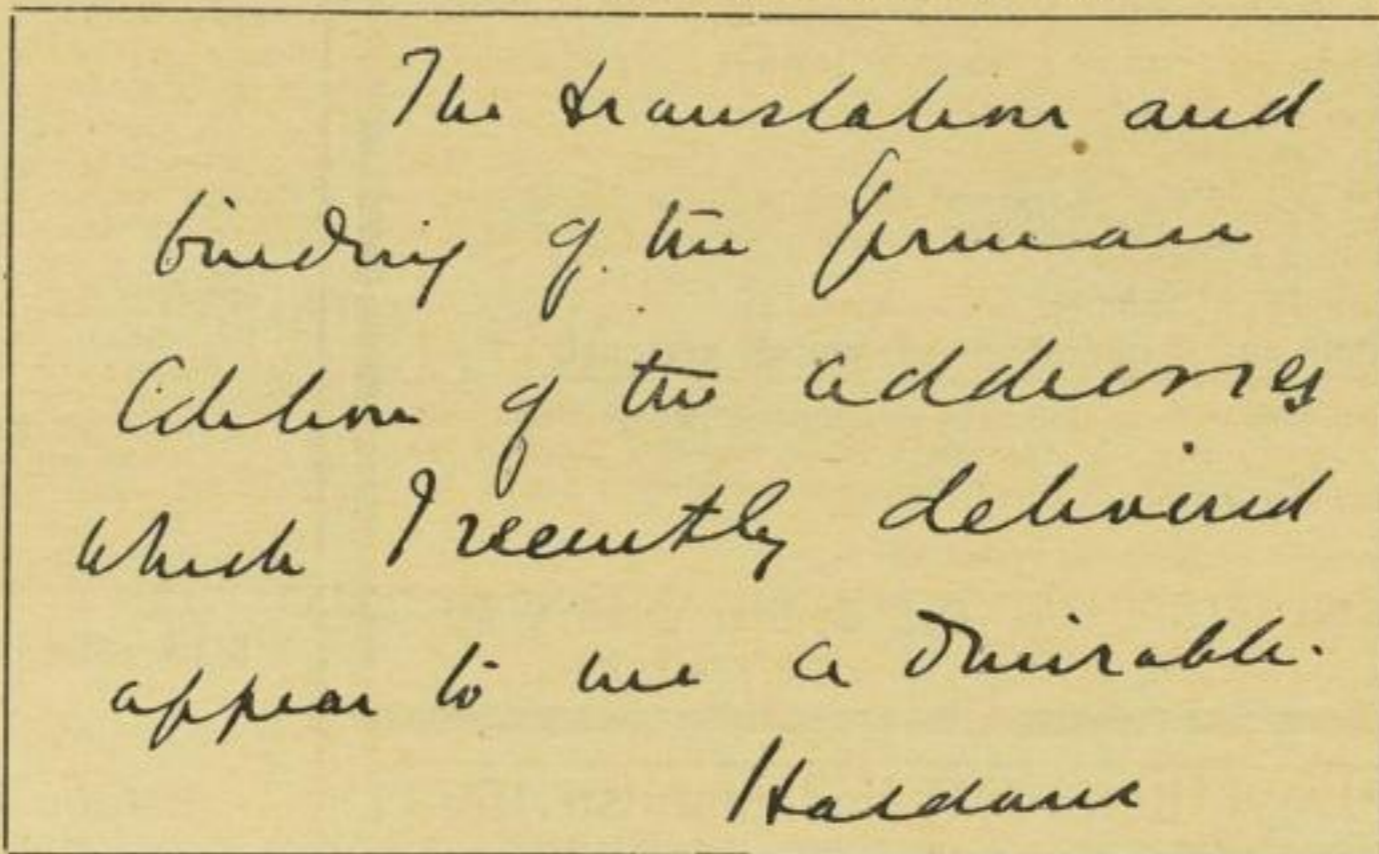 The translation and
binding of the German
Edition of the addresses
which I recently delivered
appear to me admirable.
Haldane